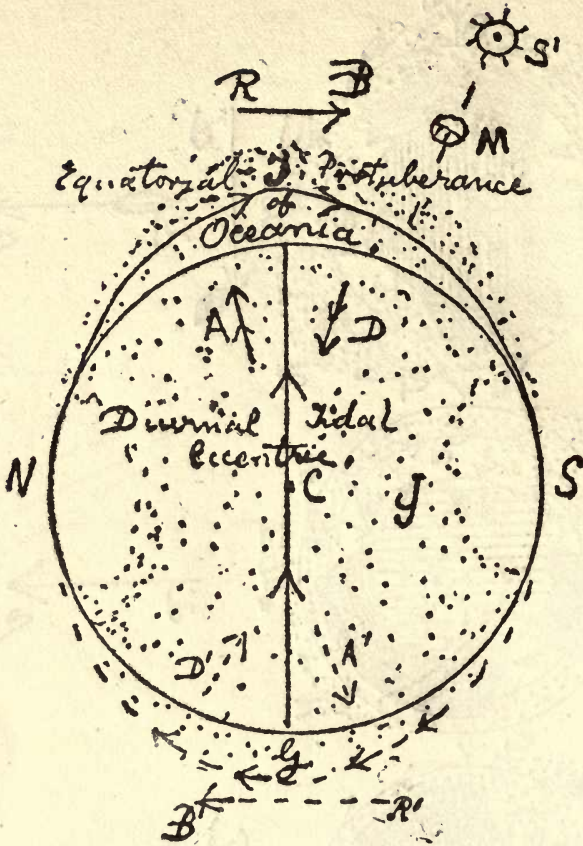 S'
R B
M
Equatorial J Protuberance
of
Oceania
A D
Diurnal Tidal
Eccentric
N C S
J
D' A'
G
B' R'